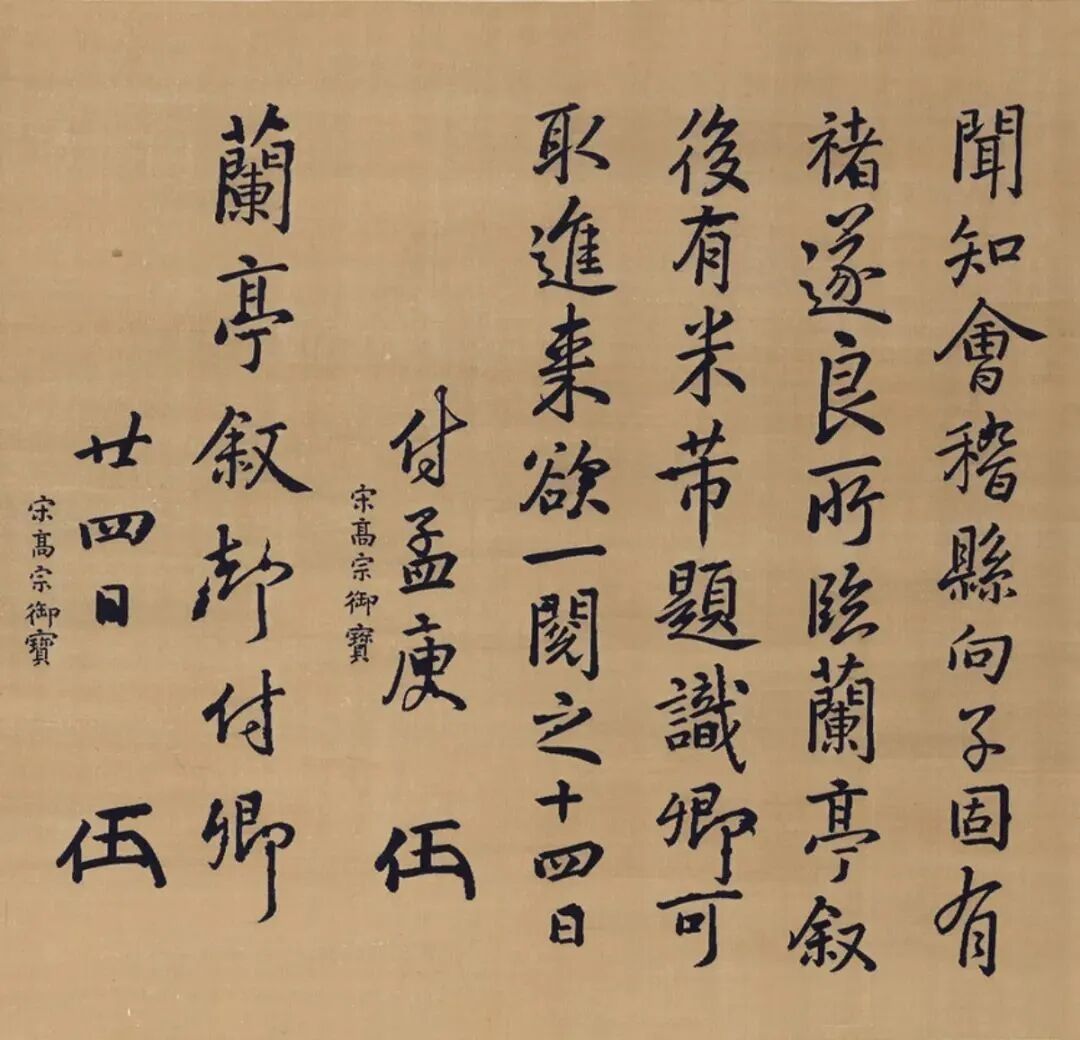 聞知會稽縣向子固有
褚遂良所臨蘭亭叙
後有米芾題識卿可
取進來欲一閱之十四日
付孟庾
宋髙宗御寶
蘭亭叙却付卿
廿四日
宋髙宗御寶